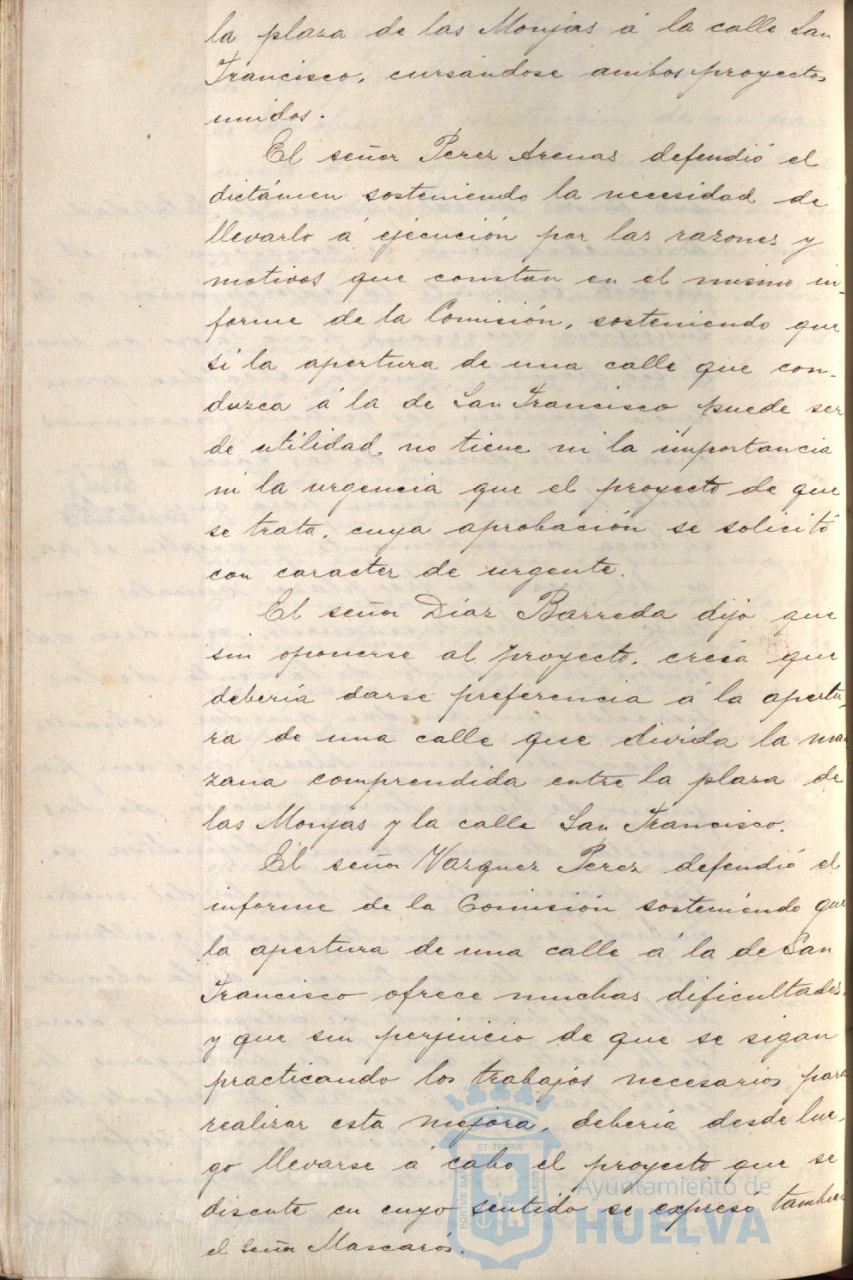 la plaza de las Monjas á la calle San
Francisco, cursándose ambos proyectos
unidos.
El señor Perez Arenas defendió el
dictámen sosteniendo la necesidad de
llevarlo á ejecución por las razones y
motivos que constan en el mismo in-
forme de la Comisión, sosteniendo que
si la apertura de una calle que con-
duzca á la de San Francisco puede ser
de utilidad, no tiene ni la importancia
ni la urgencia que el proyecto de que
se trata, cuya aprobación se solicitó
con caracter de urgente.
El señor Díaz Barreda dijo que
sin oponerse al proyecto, creía que
debería darse preferencia á la apertu-
ra de una calle que divida la man
zana comprendida entre la plaza de
las Monjas y la calle San Francisco.
El señor Vazquez Perez defendió el
informe de la Comisión sosteniendo que
la apertura de una calle á la de San
Francisco ofrece muchas dificultades,
y que sin perjuicio de que se sigan
practicando los trabajos necesarios para
realizar esta mejora, debería desde lue-
go llevarse á cabo el proyecto que se
discute en cuyo sentido se expresó tambien
el señor Mascarós.
PORTUS MARIS ET TERRÆ CUSTODIA
Ayuntamiento de
HUELVA